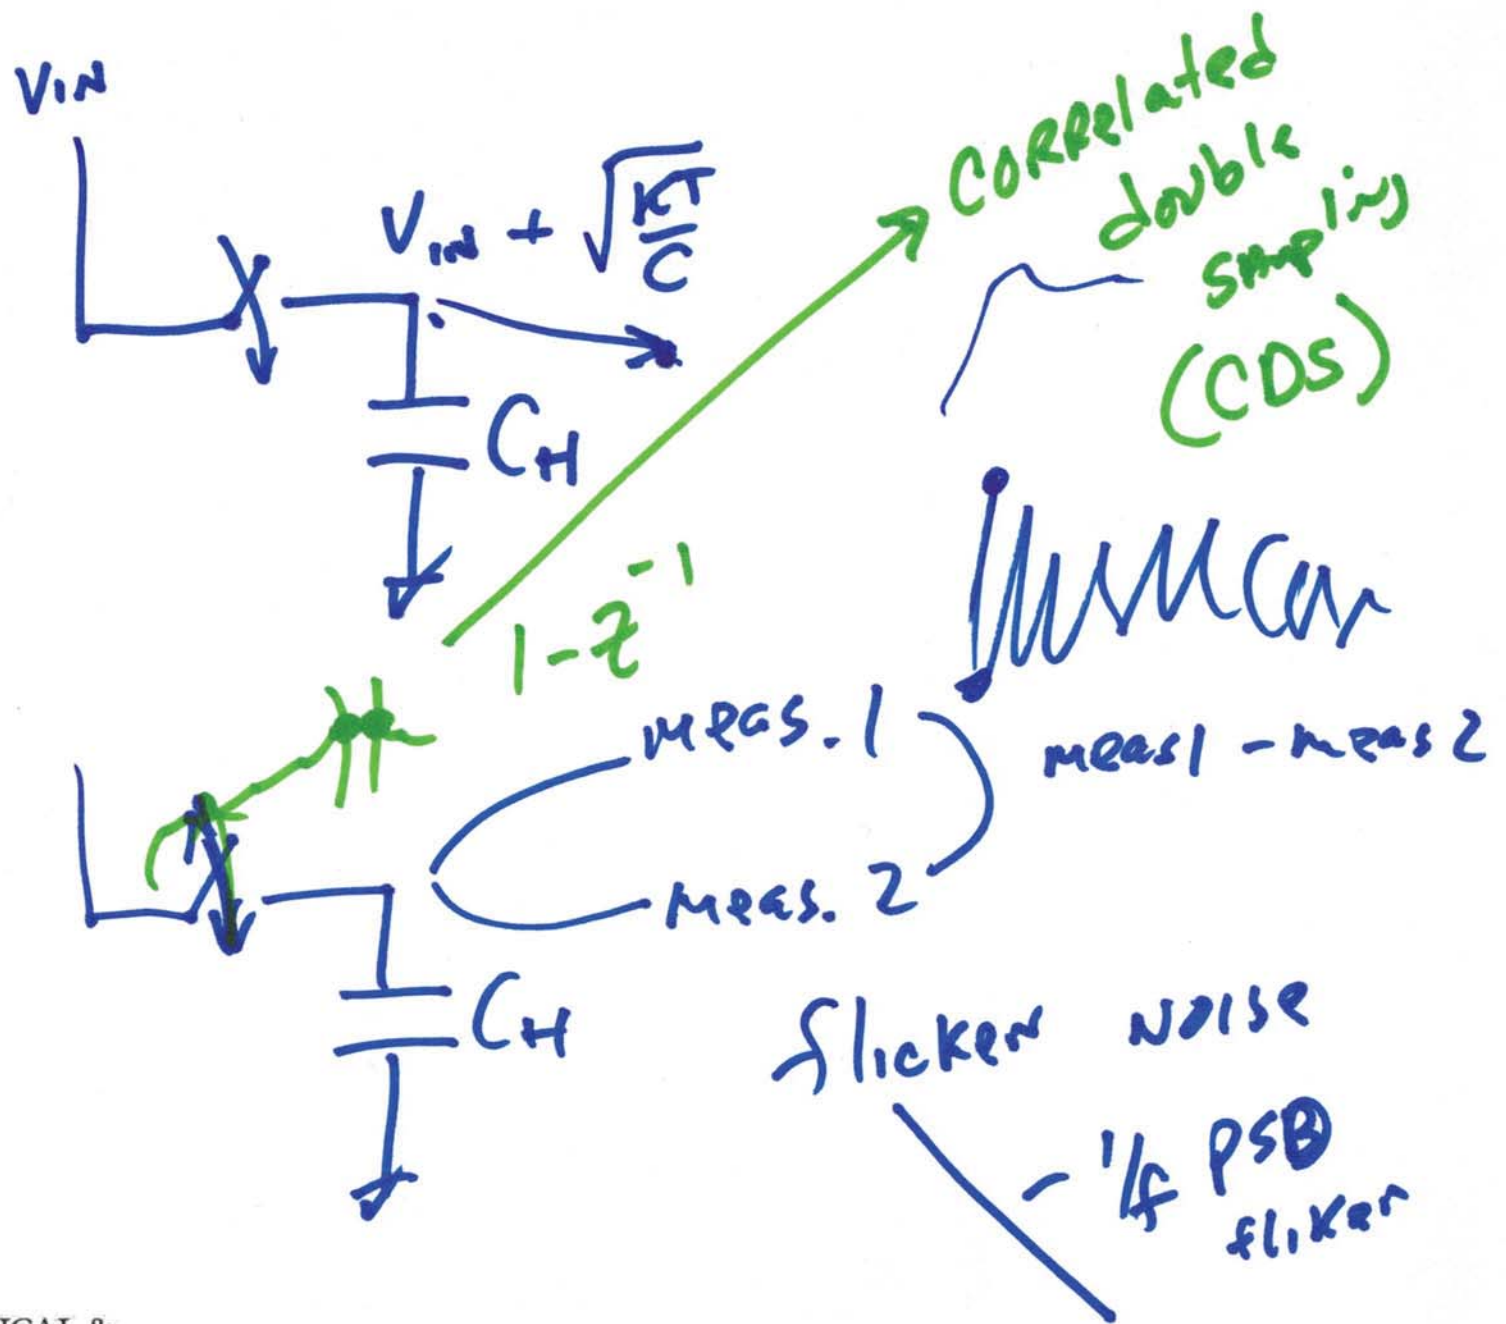 VIN
VIN + √(KT/C)
CORRelated
double
sampling
(CDS)
CH
1 - z⁻¹
meas. 1
meas1 - meas2
meas. 2
CH
flicker NOISE
- 1/f PSD
fliker